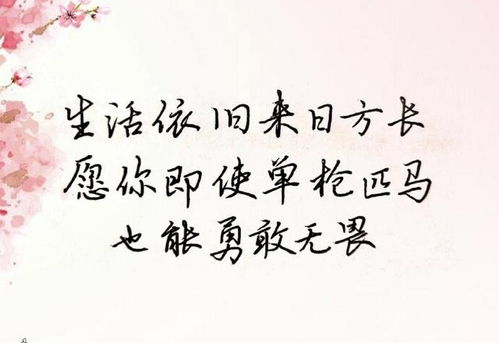 生活依旧来日方长
愿你即使单枪匹马
也能勇敢无畏